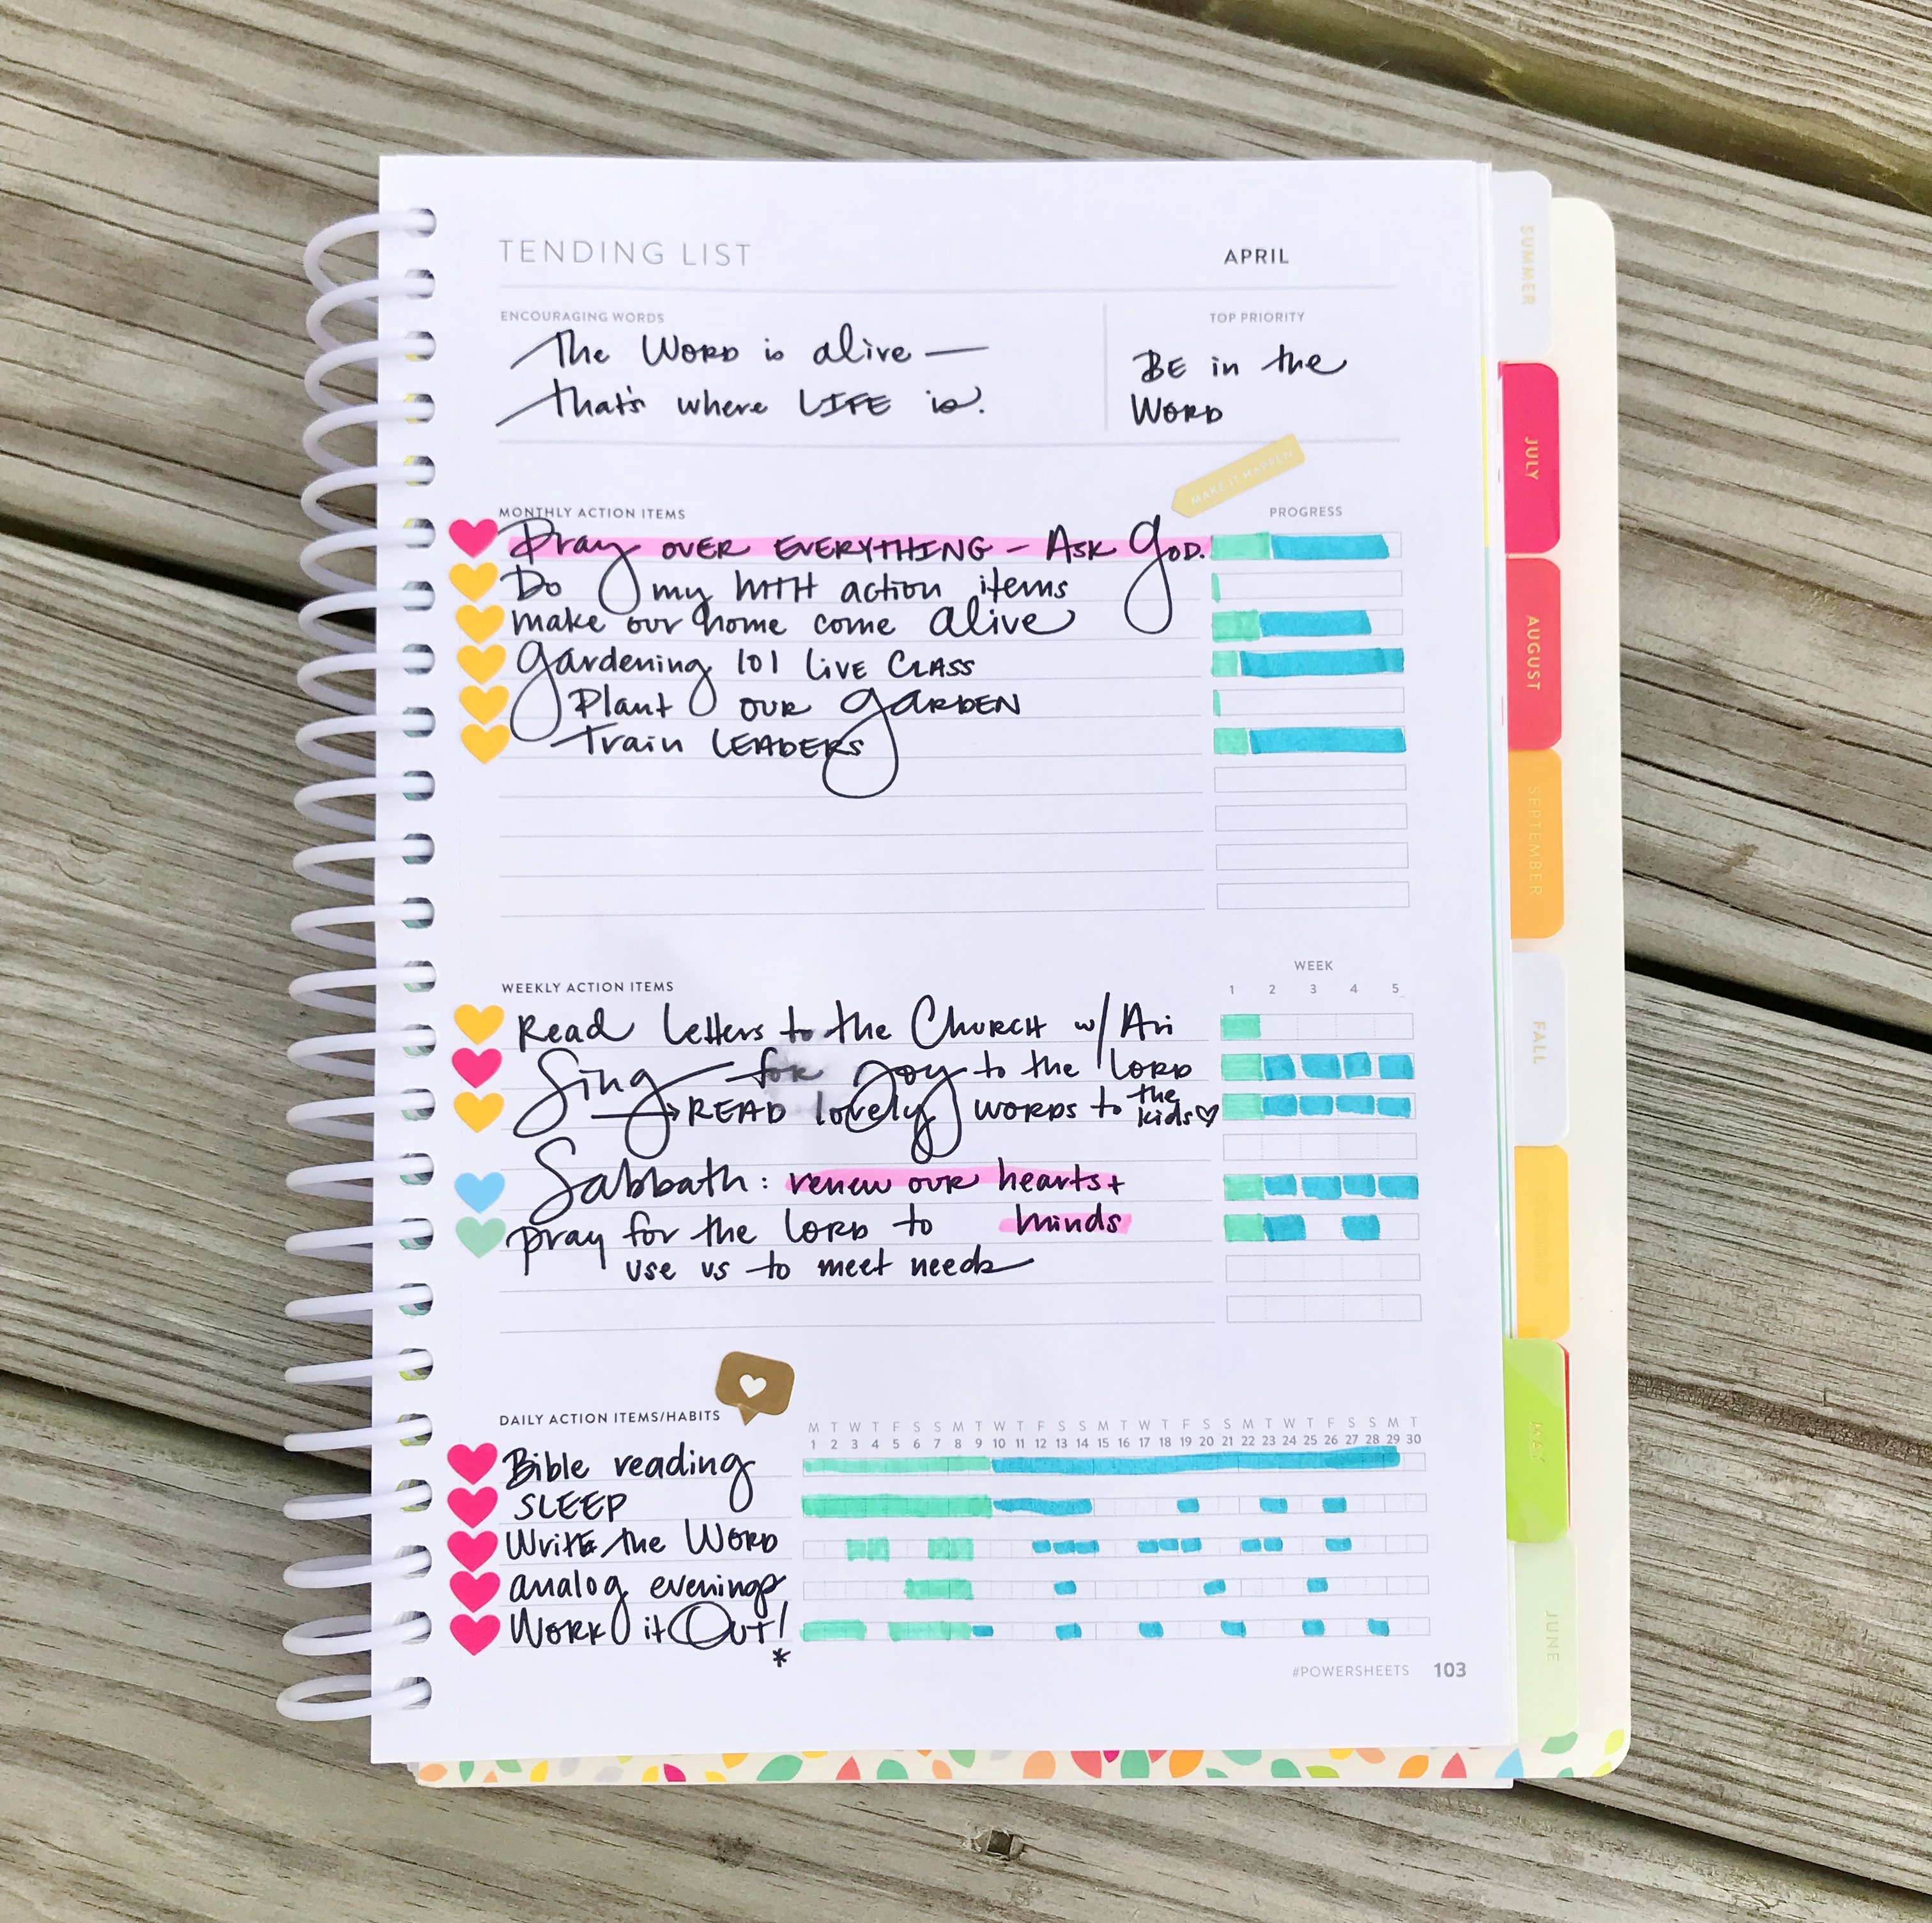 TENDING LIST
APRIL
ENCOURAGING WORDS
The WORD is alive —
that's where LIFE is.
TOP PRIORITY
BE in the
WORD
MAKE IT HAPPEN
MONTHLY ACTION ITEMS
PROGRESS
Pray OVER EVERYTHING – ASK GOD.
Do my MIH action items
make our home come alive
Gardening 101 LIVE CLASS
Plant OUR GARDEN
Train LEADERS
WEEKLY ACTION ITEMS
WEEK
1 2 3 4 5
Read Letters to the CHURCH w/ Ari
Sing for Joy to the LORD
→ READ lovely WORDS to the
kids♡
Sabbath: renew our hearts +
minds
pray for the LORD to
use us to meet needs
DAILY ACTION ITEMS/HABITS
M T W T F S S M T W T F S S M T W T F S S M T W T F S S M T
1 2 3 4 5 6 7 8 9 10 11 12 13 14 15 16 17 18 19 20 21 22 23 24 25 26 27 28 29 30
Bible reading
SLEEP
Write the WORD
analog evenings
WORK it OUT!
*
#POWERSHEETS 103
SUMMER
JULY
AUGUST
SEPTEMBER
FALL
MAY
JUNE